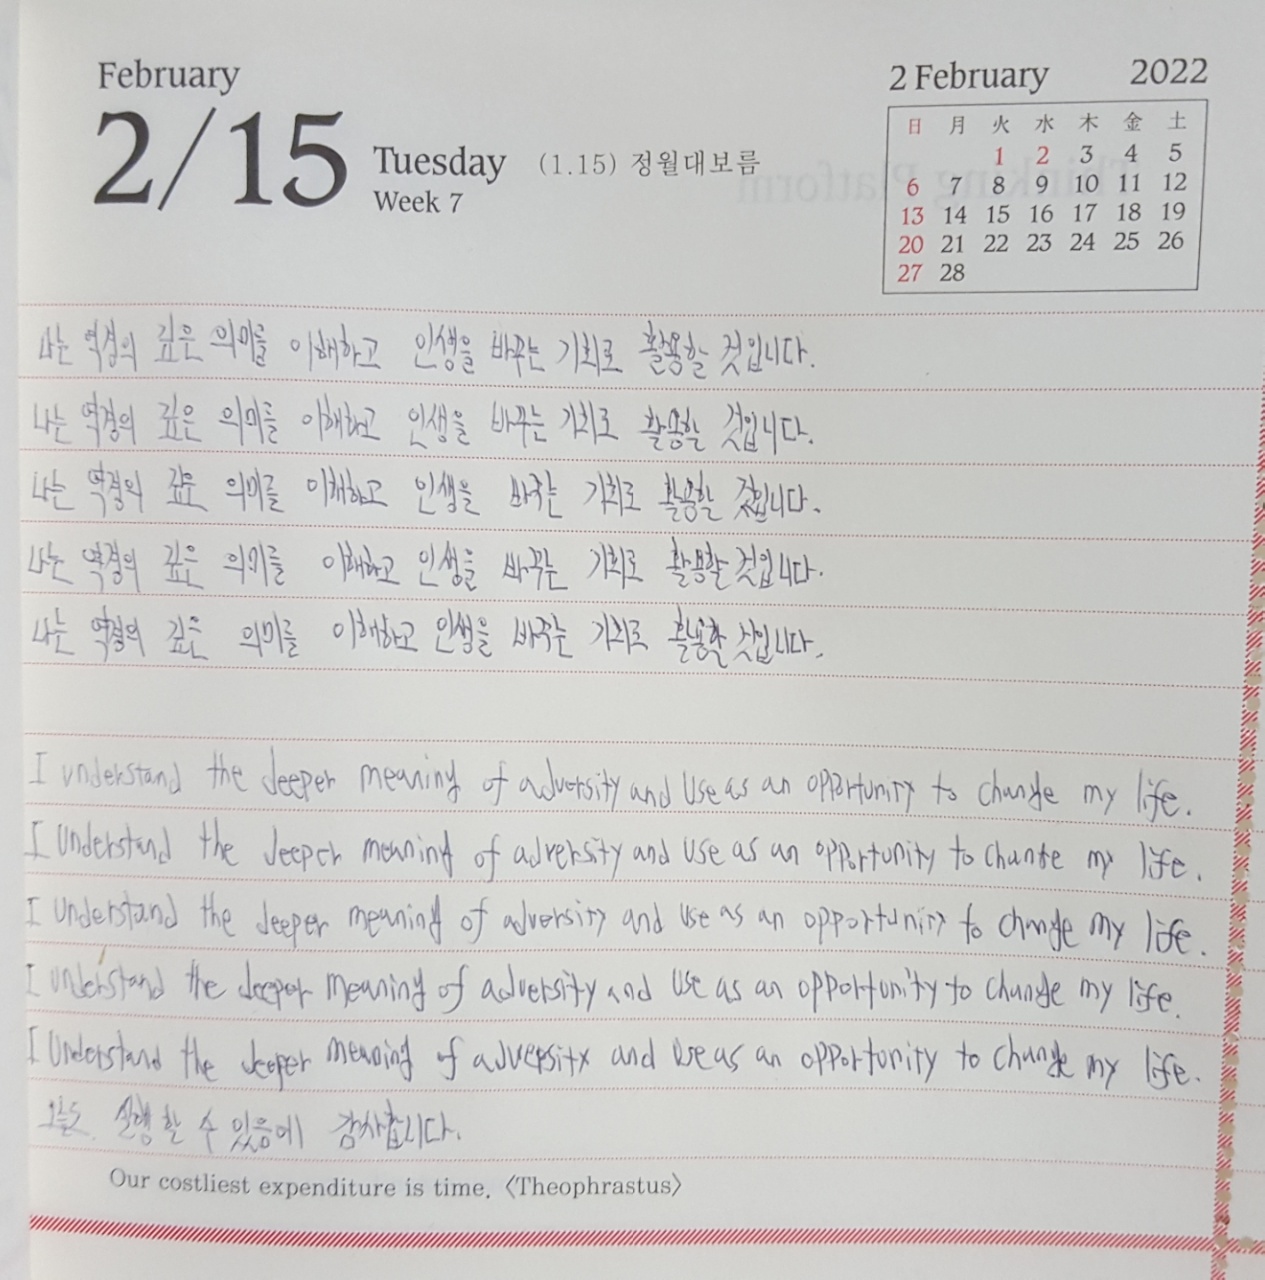 February
2/15 Tuesday (1.15) 정월대보름
Week 7
2 February 2022
日 月 火 水 木 金 土
1 2 3 4 5
6 7 8 9 10 11 12
13 14 15 16 17 18 19
20 21 22 23 24 25 26
27 28
나는 역경의 깊은 의미를 이해하고 인생을 바꾸는 기회로 활용할 것입니다.
나는 역경의 깊은 의미를 이해하고 인생을 바꾸는 기회로 활용할 것입니다.
나는 역경의 깊은 의미를 이해하고 인생을 바꾸는 기회로 활용할 것입니다.
나는 역경의 깊은 의미를 이해하고 인생을 바꾸는 기회로 활용할 것입니다.
나는 역경의 깊은 의미를 이해하고 인생을 바꾸는 기회로 활용할 것입니다.
I understand the deeper meaning of adversity and use as an opportunity to change my life.
I understand the deeper meaning of adversity and use as an opportunity to change my life.
I understand the deeper meaning of adversity and use as an opportunity to change my life.
I understand the deeper meaning of adversity and use as an opportunity to change my life.
I understand the deeper meaning of adversity and use as an opportunity to change my life.
오늘도 실행할 수 있음에 감사합니다.
Our costliest expenditure is time. 〈Theophrastus〉